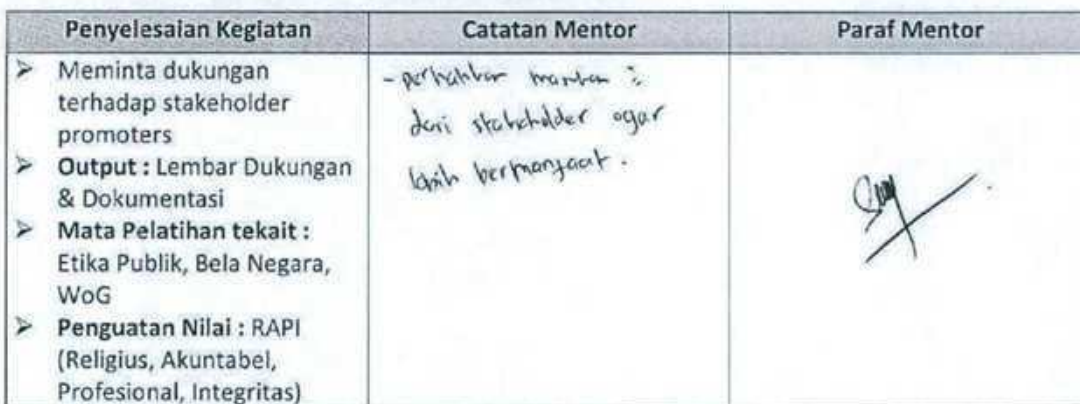 Penyelesaian Kegiatan
Catatan Mentor
Paraf Mentor
➢ Meminta dukungan
terhadap stakeholder
promoters
➢ Output : Lembar Dukungan
& Dokumentasi
➢ Mata Pelatihan tekait :
Etika Publik, Bela Negara,
WoG
➢ Penguatan Nilai : RAPI
(Religius, Akuntabel,
Profesional, Integritas)
- perhatikan masukan :
dari stakeholder agar
lebih bermanfaat.